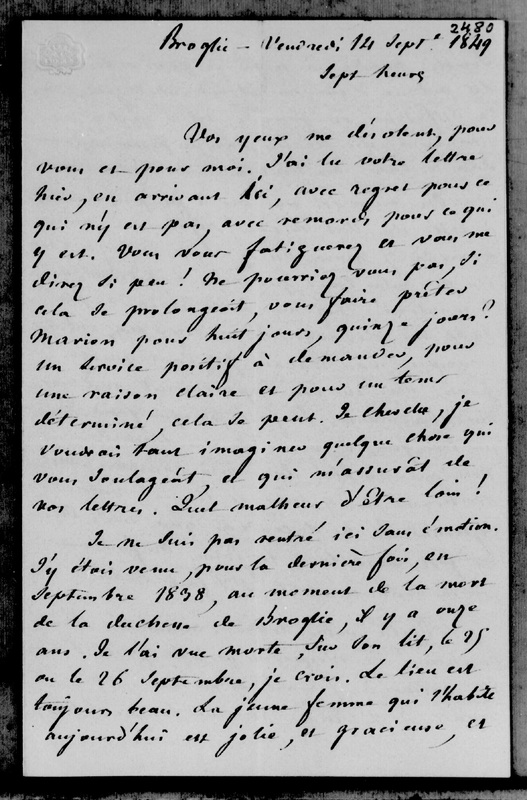 2480
Broglie - Vendredi 14 Septe 1849
Sept heures
Vos yeux me désolent, pour
vous et pour moi. J'ai lu votre lettre
hier, en arrivant ici, avec regret pour ce
qui n'y est pas, avec remords pour ce qui
y est. Vous vous fatiguerez et vous me
direz si peu ! Ne pourriez vous pas, si
cela se prolongeoit, vous faire prêter
Marion pour huit jours, quinze jours ?
un service positif à demander, pour
une raison claire et pour un tems
déterminé, cela se peut. Je cherche, je
voudrois tant imaginer quelque chose qui
vous soulageât, et qui m'assurât de
vos lettres. Quel malheur d'être loin !
Je ne suis pas rentré ici sans émotion.
J'y étois venu, pour la dernière fois, en
Septembre 1838, au moment de la mort
de la duchesse de Broglie, il y a onze
ans. Je l'ai vue morte, sur son lit, le 25
ou le 26 septembre, je crois. Le lieu est
toujours beau. La jeune femme qui l'habite
aujourd'hui est jolie, et gracieuse, et